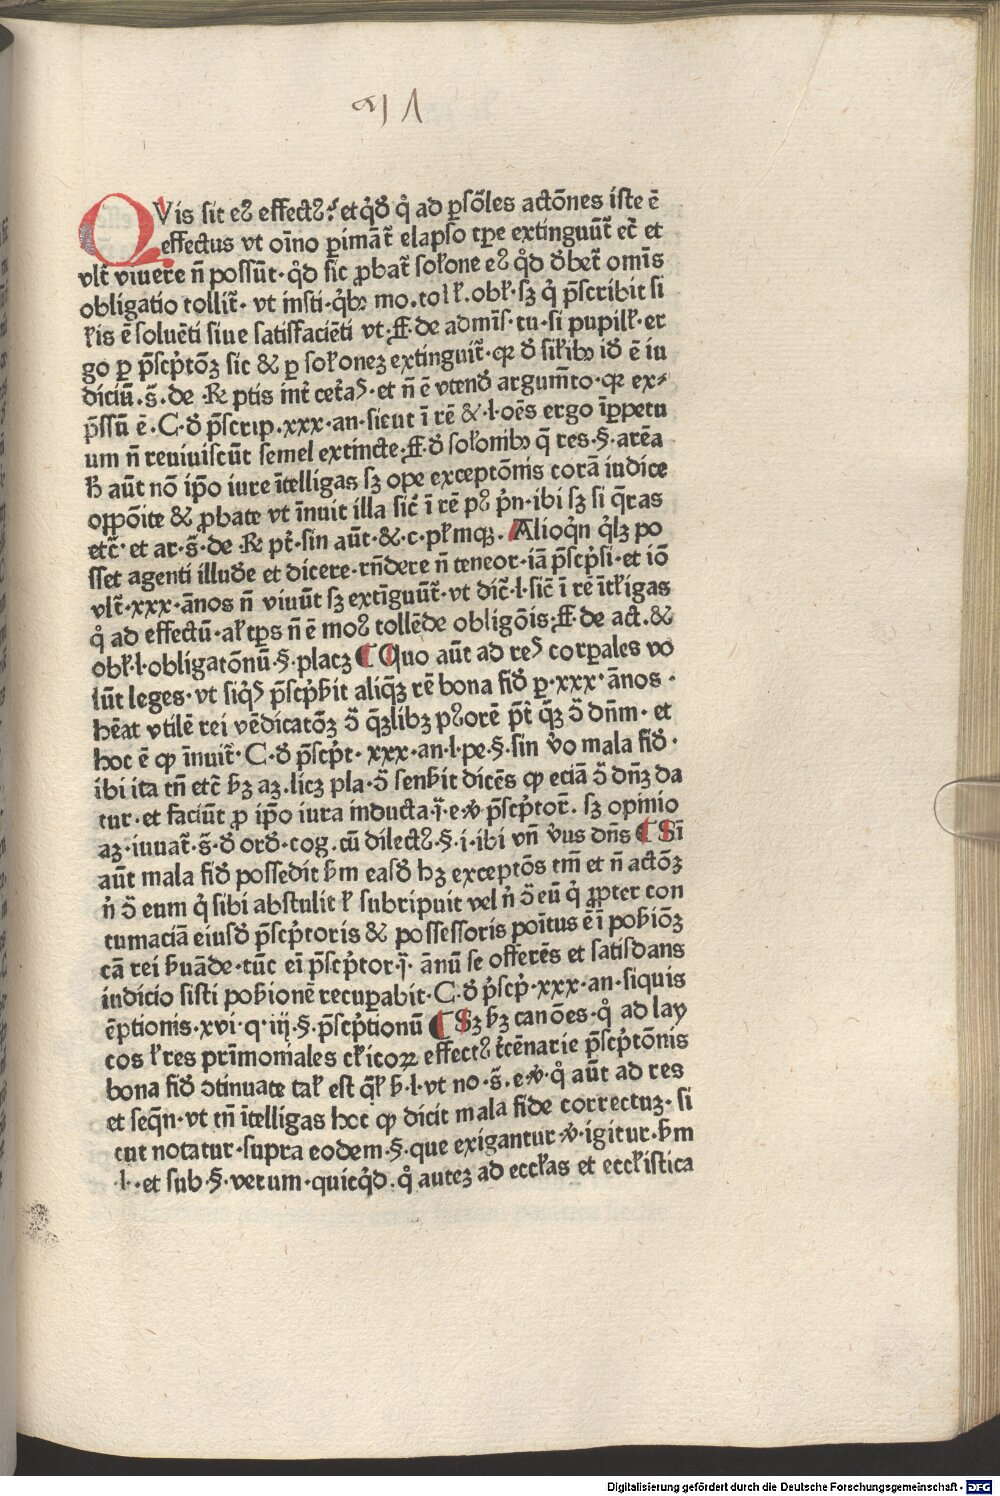 QVis sit eꝰ effectꝰ.̕ et q̇d̕ q̇ ad ꝑsōles actōnes iste ē
effectus vt oīno ꝑimāt̄ elapso tꝑe extinguūt̄ ec̄t et
vlt̄ viuere n̄ possūt· q̇d sic ꝓbat̄ soƚone eꝰ q̇d d̕bet̄ omīs
obligatio tollit̄· vt insti·q̇bꝫ mo.toƚƚ.obƚ·sꝫ q̇ p̄scribit si
ƚis ē soluēti siue satisfaciēti vt·ff·de admīs·tu·si pupilƚ·er
go ꝑ p̄scp̄tōꝫ sic & ꝑ soƚonez extinguit̄·qꝛ d̕ siƚibꝫ id̕ ē iu
diciū.s̄.de ·℞ ptis int̄ cet̄aꝰ·et n̄ ē vtend̕ argum̄to·qꝛ ex⸗
p̄ssū ē·C·d̕ p̄scrip.xxx·an·sicut ī rē &·l·oēs ergo īꝑpetu
um n̄ reuiuiscūt semel extincte·ff·d̕ soƚonibꝫ q̄ res·§·arēa
h̕ aūt nō ip̄o iure ītelligas sꝫ ope exceptōnis corā iudice
oppōite & ꝓbate vt īnuit illa sic̄ ī rē pꝰ p̄n·ibi sꝫ si q̄ras
etc̄· et ar·s̄·de ·℞ pt̄·sin aūt·&·c·pƚmqꝫ· Alioq̇n q̇lꝫ po
sset agenti illud̕e et dicere·rn̄dere n̄ teneor·iā p̄scp̄si·et iō
vlt̄·xxx·ānos n̄ viuūt sꝫ extīguūt̄·vt dic̄t·l·sic̄ ī rē ītƚigas
q̇ ad effectū·aƚ tꝑs n̄ ē moꝰ tollēde obligōis·ff·de act·&
obƚ·l·obligatōnū·§·placꝫ ¶ Quo aūt ad reꝰ corꝑales vo
lūt leges·vt siq̇s p̄scp̄b̕it aliq̄ꝫ rē bona fid̕ ꝑ·xxx·ānos·
hēat vtilē rei vēdicatōꝫ ɔ̄ q̄ꝫlibꝫ pꝰorē p̄t q̄ꝫ ɔ̄ dn̄m· et
hoc ē ꝙ īnuit̄· C·d̕ p̄scp̄t· xxx·an·l·pe·§·sin v̕o mala fid̕·
ibi ita tn̄ etc̄ hꝫ aꝫ.licꝫ pla·ɔ̄ senb̕it dicēs ꝙ eciā ɔ̄ dn̄ꝫ da
tur·et faciūt ꝓ ip̄o iura inducta·j̄·e·℣ p̄scp̄tor̄. sꝫ opinio
aꝫ·iuuat̄·s̄·d̕ ord̕·cog.cū dilectꝰ·§·i·ibi vn̄ v̕us dn̄s ¶ Si
aūt mala fid̕ possedit h̕m easd̕ hꝫ exceptōs tm̄ et n̄ actōꝫ
n̄ ɔ̄ eum q̇ sibi abstulit ƚ subripuit vel n̄ ɔ̄ eū q̇ ꝓpter con
tumaciā eiusd̕ p̄scp̄toris & possessoris poītus ē ī pob̕iōꝫ
cā rei b̕uāde·tūc eī p̄scp̄tor·j̄· ānū se offerēs et satisdans
iudicio sisti pob̕ionē recuꝑabit·C·d̕ p̄scp̄·xxx·an·siquis
ēptionis·xvi·q·iij·§·p̄scp̄tionū ¶ Sꝫ hꝫ canōes·q̇ ad lay
cos ƚ res prīmoniales cƚicoꝝ effectꝰ t̄cēnarie p̄scp̄tōnis
bona fid̕ ɔtinuate taƚ est q̄ƚ h̕·l·vt no·s̄·e·℣·q̇ aūt ad res
et seq̄n·vt tn̄ ītelligas hoc ꝙ dicit mala fide correctuꝫ· si
cut notatur·supra eodem·§·que exigantur·℣·igitur·h̕m
·l··et sub·§·verum·quicq̇d·q̇ autez ad eccƚas et eccƚistica
Digitalisierung gefördert durch die Deutsche Forschungsgemeinschaft - DFG